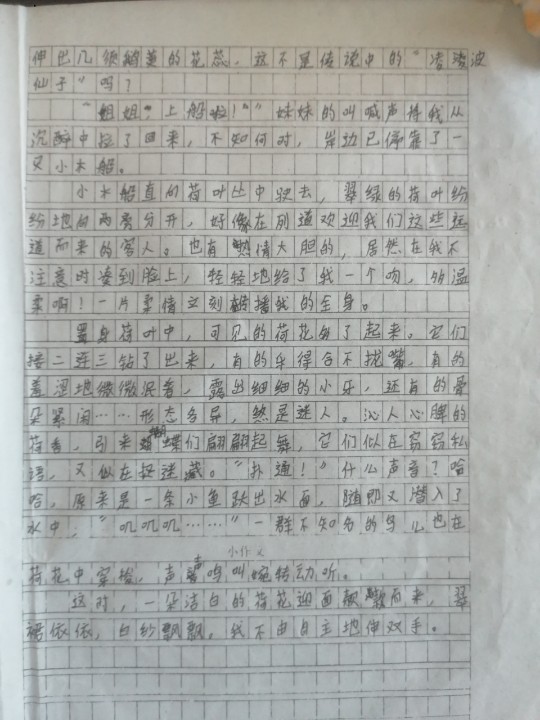 伸出几领娇羞的花蕊，这不是传说中的“凌凌波
仙子”吗？
“姐姐，上船啦！”妹妹的叫喊声将我从
沉醉中拉了回来，不知何时，岸边已停靠了一
叉小木船。
小木船直向荷叶丛中驶去，翠绿的荷叶纷
纷地向两旁分开，好像在列道欢迎我们这些远
道而来的客人。也有热情大胆的，居然在我不
注意时凑到脸上，轻轻地给了我一个吻，多温
柔啊！一片柔情立刻传播我的全身。
置身荷叶中，可见的荷花多了起来。它们
接二连三钻了出来，有的乐得合不拢嘴，有的
羞涩地微微泯着，露出细细的小牙，还有的骨
朵紧闭……形态各异，煞是迷人。沁人心脾的
荷香，引来蝴蝶们翩翩起舞，它们似在窃窃私
语，又似在捉迷藏。“扑通！”什么声音？哈
哈，原来是一条小鱼跃出水面，随即又潜入了
水中，“叽叽叽……”一群不知名的鸟儿也在
小作文
荷花中穿梭，声声鸣叫婉转动听。
这时，一朵洁白的荷花迎面飘飘而来，翠
裙依依，白纱飘飘，我不由自主地伸双手。